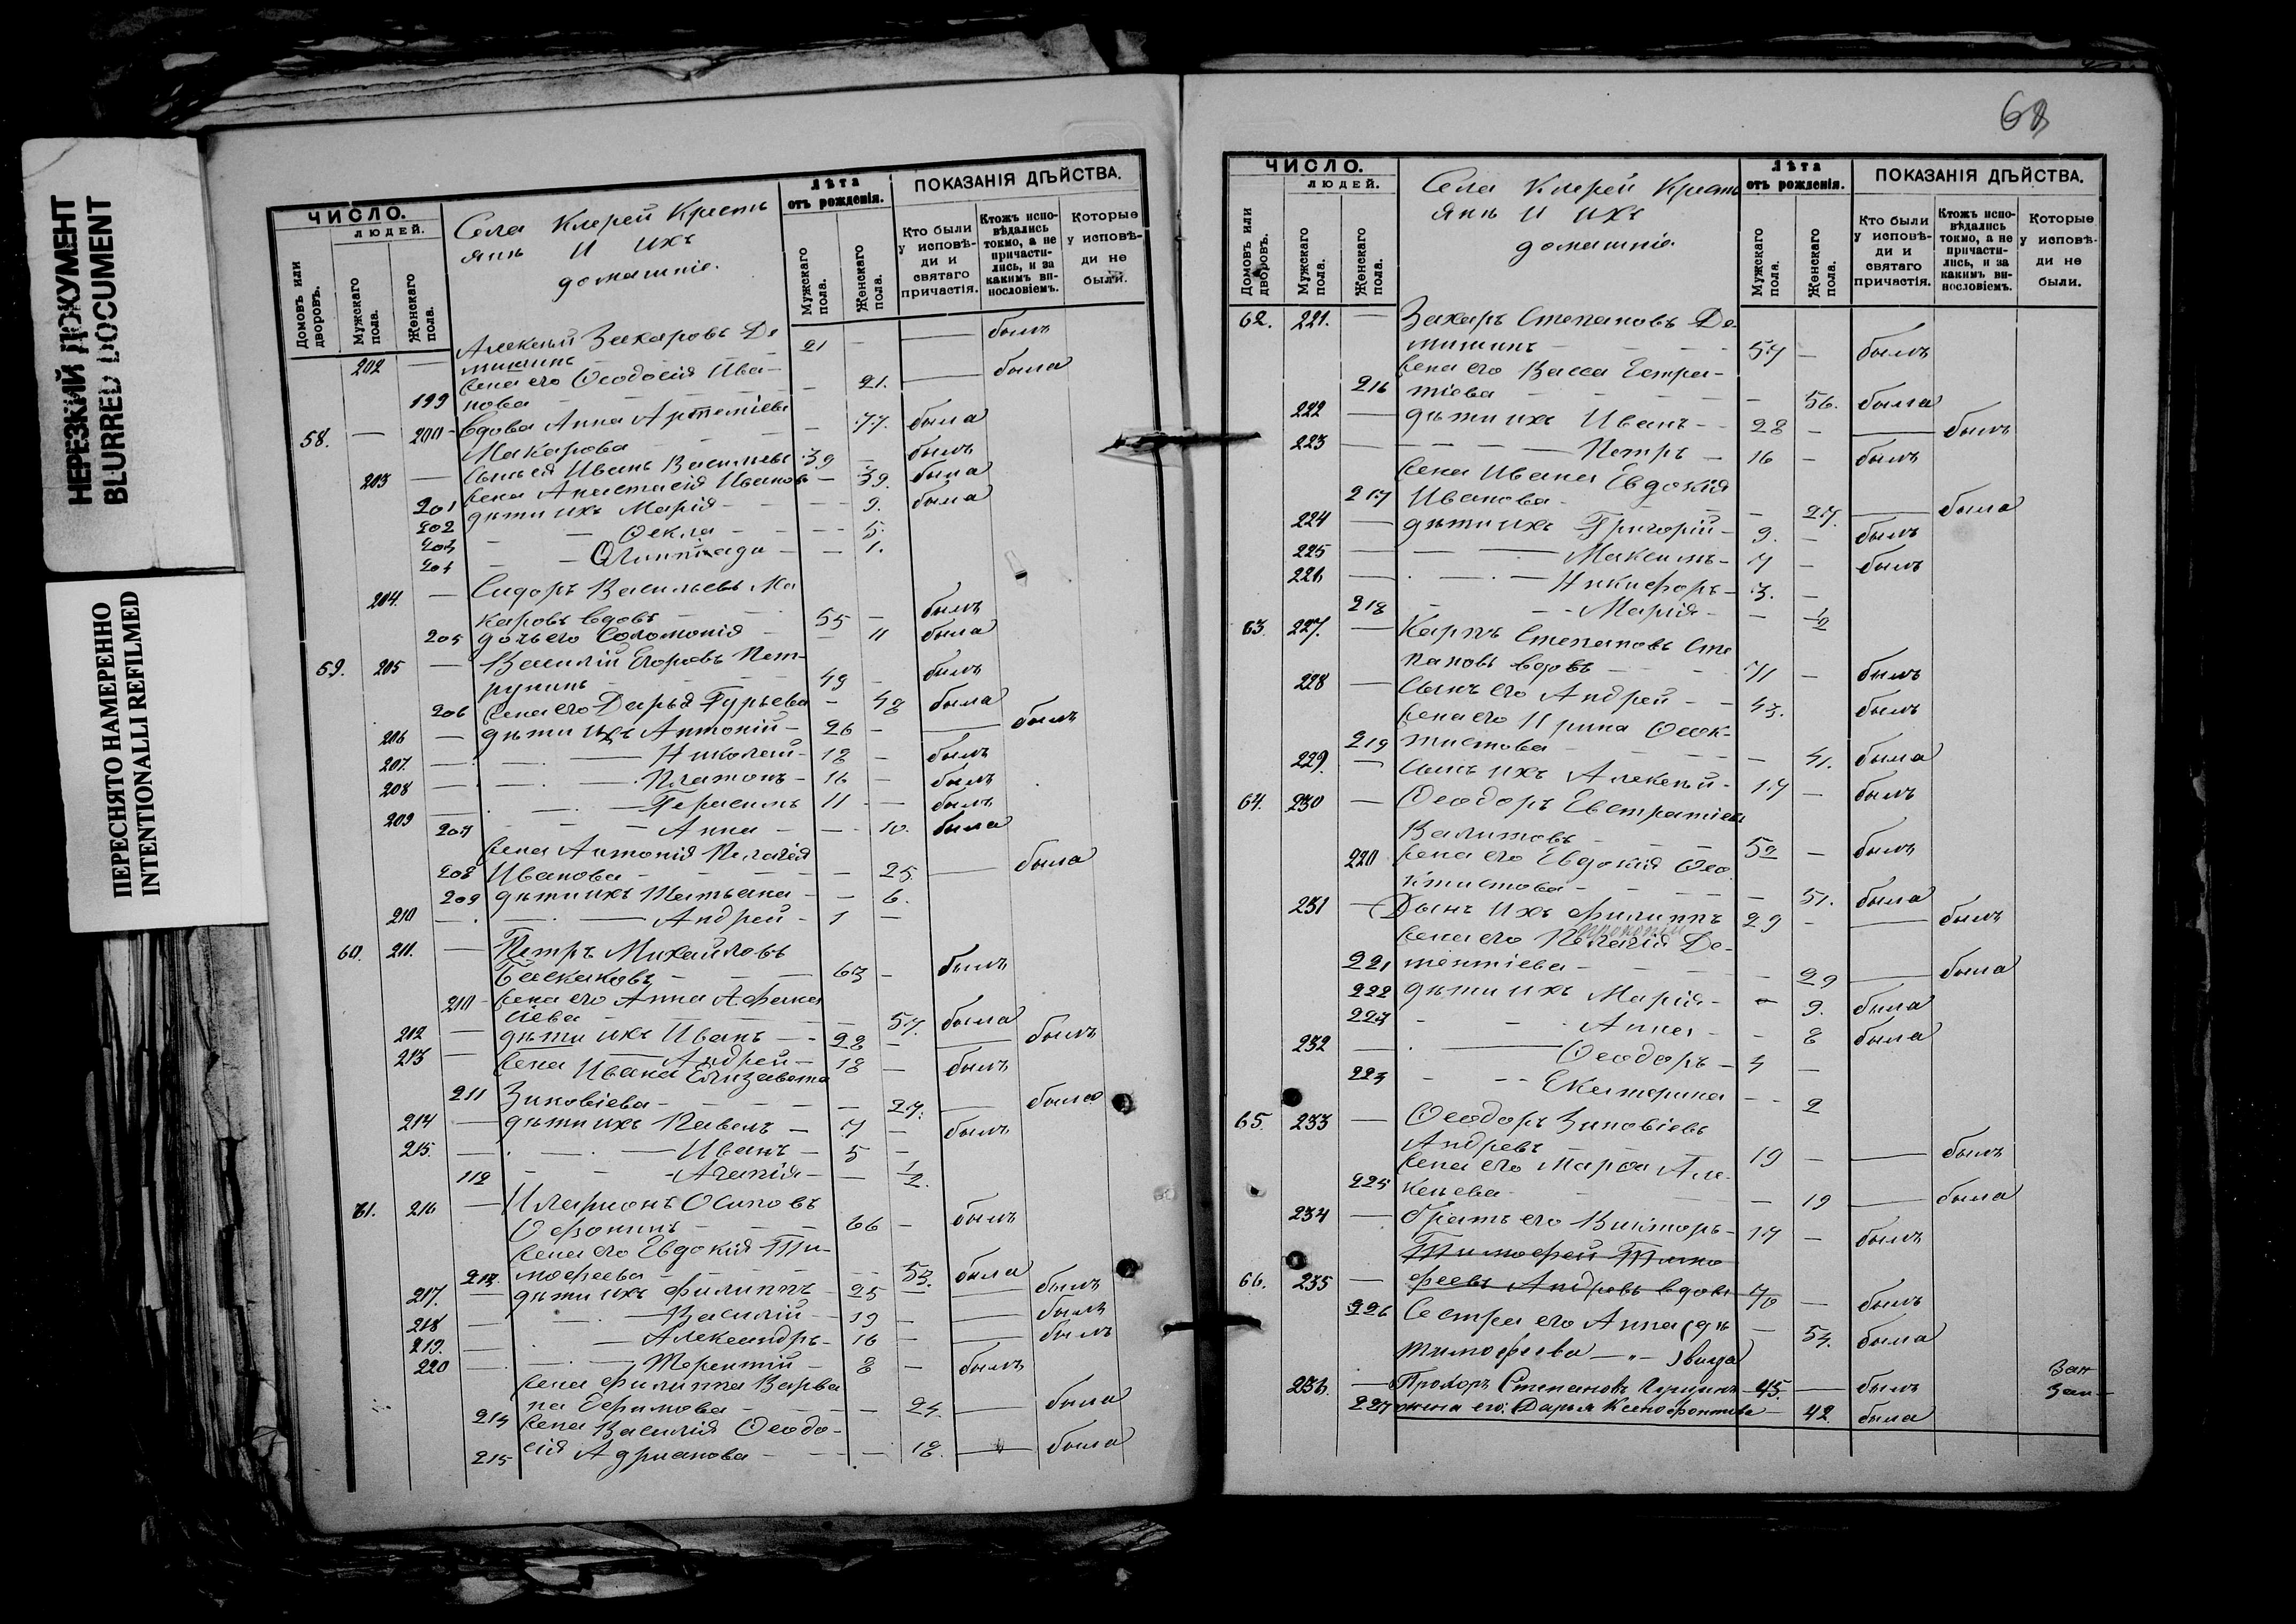 НЕРЕЗКИЙ ДОКУМЕНТ
BLURRED DOCUMENT
ПЕРЕСНЯТО НАМЕРЕННО
INTENTIONALLI REFILMED
ЧИСЛО.
ЛЮДЕЙ.
Домовъ или дворовъ.
Мужскаго пола.
Женскаго пола.
Села Ключей Кресть
янъ и ихъ
домашніе.
Лѣта
отъ рожденія.
Мужскаго пола.
Женскаго пола.
ПОКАЗАНІЯ ДѢЙСТВА.
Кто были у исповѣди и святаго причастія.
Ктожъ исповѣдались токмо, а не причастились, и за какимъ винословіемъ.
Которые у исповѣди не были.
Алексѣй Захаровъ Де
202 — 21 — — былъ
жена его Ѳеодосія Ива-
199 нова — 21. — была
58. — 200 вдова Анна Артеміева — 77. была
Макарова
203 — сынъ ея Иванъ Васильевъ 39 — былъ
201 жена Анастасія Иванов — 39. была
202 дѣти ихъ Марія — 9. была
203 Ѳекла — 5.
204 Олимпіада — 1.
204. — Сидоръ Васильевъ Ма
каровъ вдовъ 55 — былъ
205 дочь его Соломонія — 11 была
59. 205 — Василій Егоровъ Пет-
рунинъ 49 — былъ
206 жена его Дарья Гурьева — 48 была
206 — дѣти ихъ Антоній 26 — — былъ
207. — Николай 18 — былъ
208 — Платонъ 16 — былъ
209 — Герасимъ 11 — былъ
207 Анна — 10. была
жена Антонія Пелагія
208 Иванова — 25. — была
209 дѣти ихъ Татьяна — 6.
210 — Андрей 1 —
60. 211. — Петръ Михайловъ
Баскаковъ 63 — былъ
210 жена его Анна Афана
сіева — 57. была
212 — дѣти ихъ Иванъ 28 — — былъ
213 — Андрей 18 — былъ
жена Ивана Елизавета
211 Зиновіева — 27. — была
214 — дѣти ихъ Павелъ 7 — былъ
215. — Иванъ 5 —
112 Агапія — 1/2.
61. 216 — Иларіонъ Осиповъ
Офонинъ 66 — былъ
жена его Евдокія Ти-
213. мофеева — 53. была
217. — дѣти ихъ Филиппъ 25 — — былъ
218 — Василій 19 — — былъ
219. — Александръ 16 — — былъ
220 — Терентій 8 — былъ
жена Филиппа Варва
214 ра Ефимова — 24. — была
жена Василія Ѳеодо-
215 сія Адріанова — 18. — была
68
ЧИСЛО.
ЛЮДЕЙ.
Домовъ или дворовъ.
Мужскаго пола.
Женскаго пола.
Села Ключей Кресть
янъ и ихъ
домашніе
Лѣта
отъ рожденія.
Мужскаго пола.
Женскаго пола.
ПОКАЗАНІЯ ДѢЙСТВА.
Кто были у исповѣди и святаго причастія.
Ктожъ исповѣдались токмо, а не причастились, и за какимъ винословіемъ.
Которые у исповѣди не были.
62. 221. — Захаръ Степановъ Де
57 — былъ
жена его Васса Евтра-
216 тіева — 56. была
222 — дѣти ихъ Иванъ 28 — — былъ
223 — Петръ 16 — былъ
жена Ивана Евдокія
217 Иванова — 27. — была
224 — дѣти ихъ Григорій 9. — былъ
225 — Максимъ 7 — былъ
226 — Никифоръ 3. —
218 Марія — 1/2
63. 227. — Карпъ Степановъ Сте
пановъ вдовъ 71 — былъ
228 — сынъ его Андрей 43. былъ
жена его Ирина Ѳеок-
219 тистова — 41. была
229. — сынъ ихъ Алексѣй 17 — былъ
64. 230 — Ѳеодоръ Евстратіевъ
Валитовъ 52 — былъ
220 жена его Евдокія Ѳео
ктистова — 51. была
231 — Сынъ ихъ Филиппъ 29 — — былъ
жена его Пелагія Де-
221 ментіева — 29 — была
222 дѣти ихъ Марія — 9. была
223 Анна — 8 была
232 — Ѳеодоръ 4 —
223 Екатерина — 2
65. 233 — Ѳеодоръ Зиновіевъ
Андревъ 19 — — былъ
жена его Марѳа Але
225 ксѣева — 19 — была
234 — братъ его Викторъ 17 — былъ
Тимофей Тимо
66. 235 — феевъ Андревъ вдовъ 70 — былъ
226 Сестра его Анна (дѣ — 54. была
Тимофеева —„— )вица
236. — Прохоръ Степановъ 45. — былъ
227 жена его: Дарья Ксенофонтова — 42. была